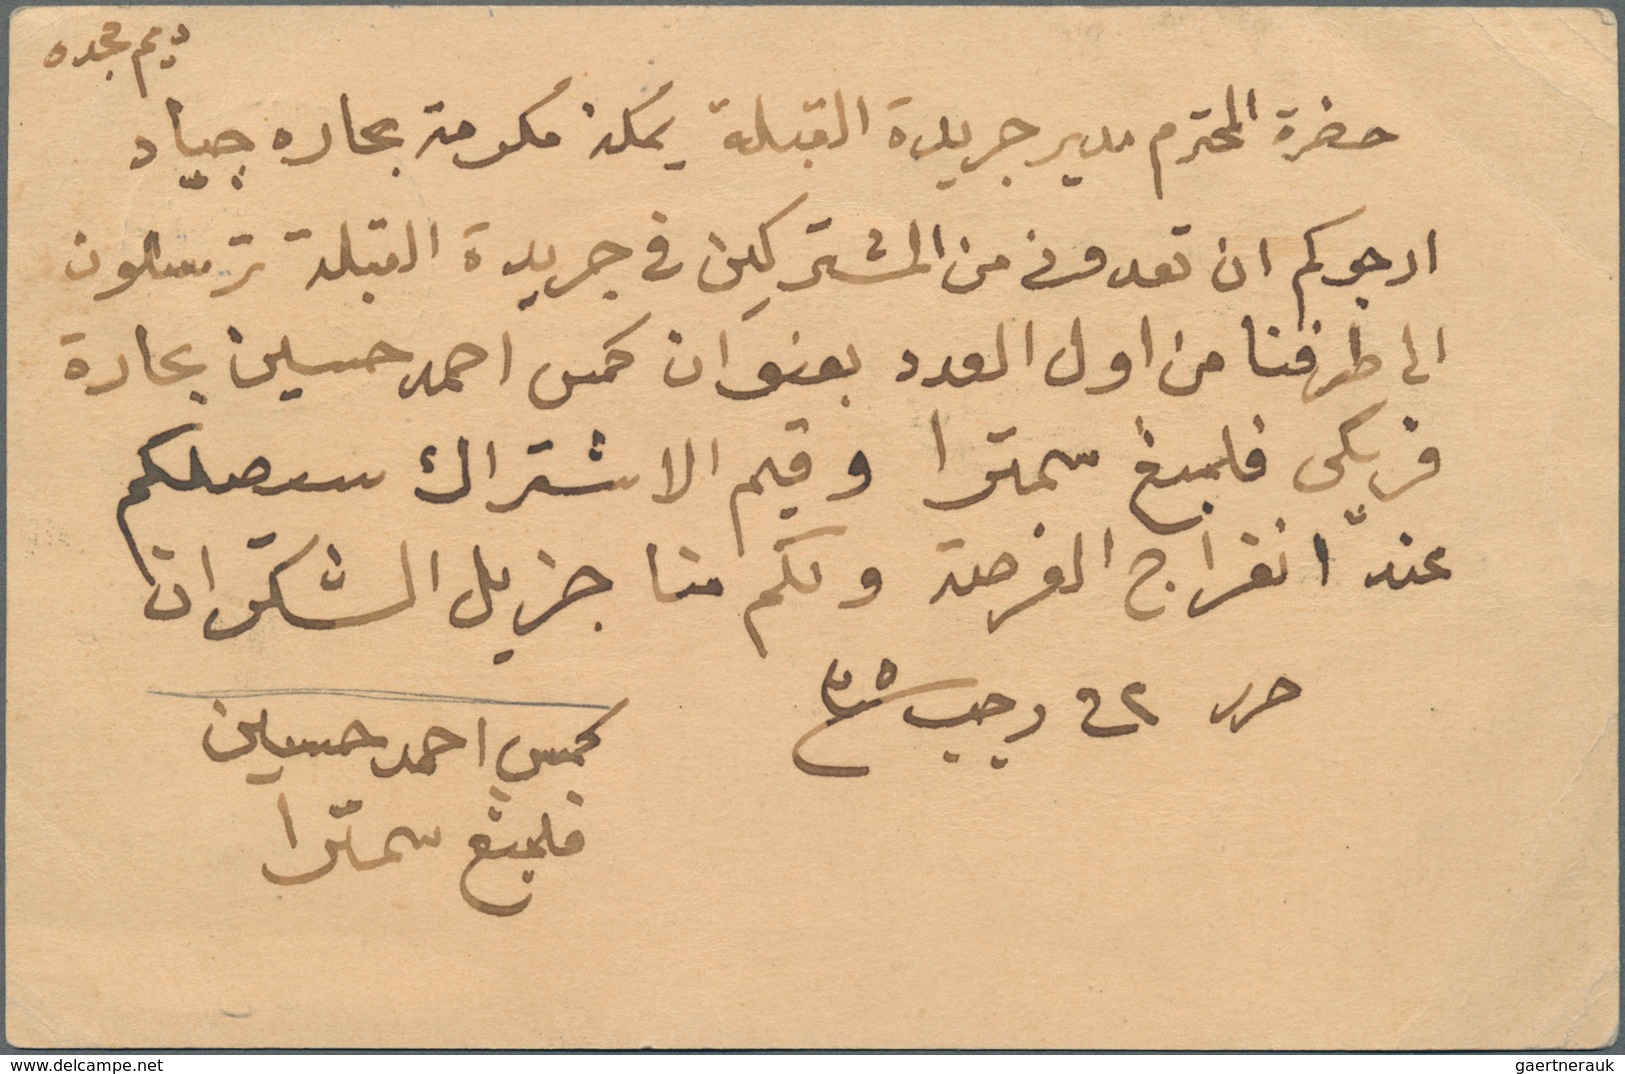 حضرة المحترم مدير جريدة القبلة بمكة مكرمة بحاره جياد
ارجوكم ان تعدوني من المشتركين في جريدة القبلة ترسلون
الى طرفنا من اول العدد بعنوان كمس احمد حسين بحارة
فريكي فلمبغ سمترا وقيم الاشتراك سيصلكم
عند انفراج الفرصة ولكم منا جزيل الشكران
حرر ٢٢ رجب ٣٥
كمس احمد حسين
فلمبغ سمترا
delcampe.net
gaertnerauk